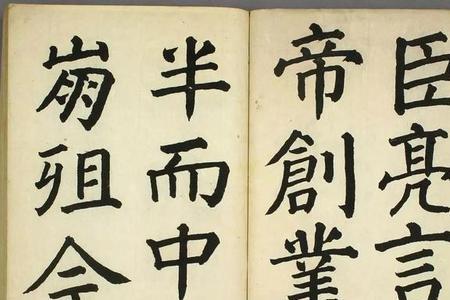 臣亮言
帝創業
半而中
崩殂今